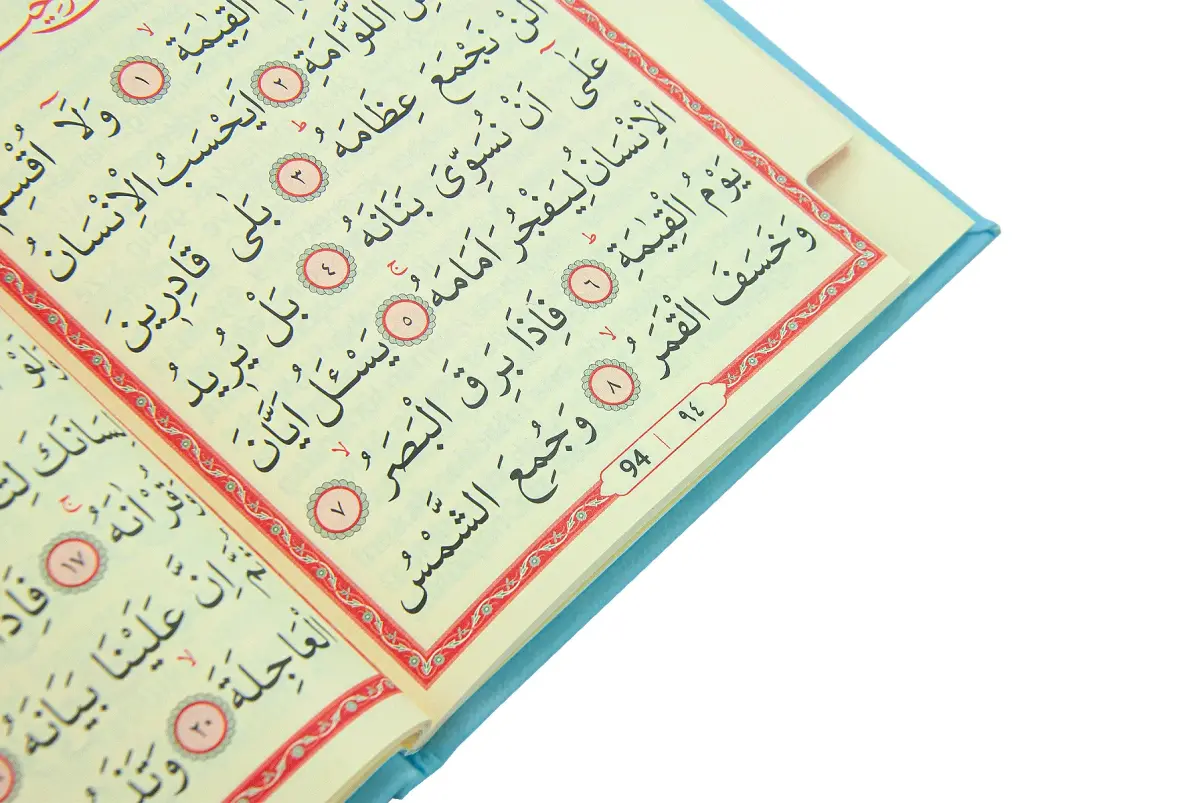 الْقِيٰمَةِۙ ١ وَلَٓا اُقْسِمُ
اللَّوَّامَةِ ٢ اَيَحْسَبُ الْاِنْسَانُ
اَلَّنْ نَجْمَعَ عِظَامَهُۜ ٣ بَلٰى قَادِرِينَ
عَلٰٓى اَنْ نُسَوِّيَ بَنَانَهُ ٤ بَلْ يُرِيدُ
الْاِنْسَانُ لِيَفْجُرَ اَمَامَهُۚ ٥ يَسْـَٔلُ اَيَّانَ
يَوْمُ الْقِيٰمَةِۜ ٦ فَاِذَا بَرِقَ الْبَصَرُۙ ٧
وَخَسَفَ الْقَمَرُۙ ٨ وَجُمِعَ الشَّمْسُ
94 | ٩٤
وَقُرْاٰنَهُۚ ١٧
ثُمَّ اِنَّ عَلَيْنَا بَيَانَهُۜ
الْعَاجِلَةَۙ ٢٠